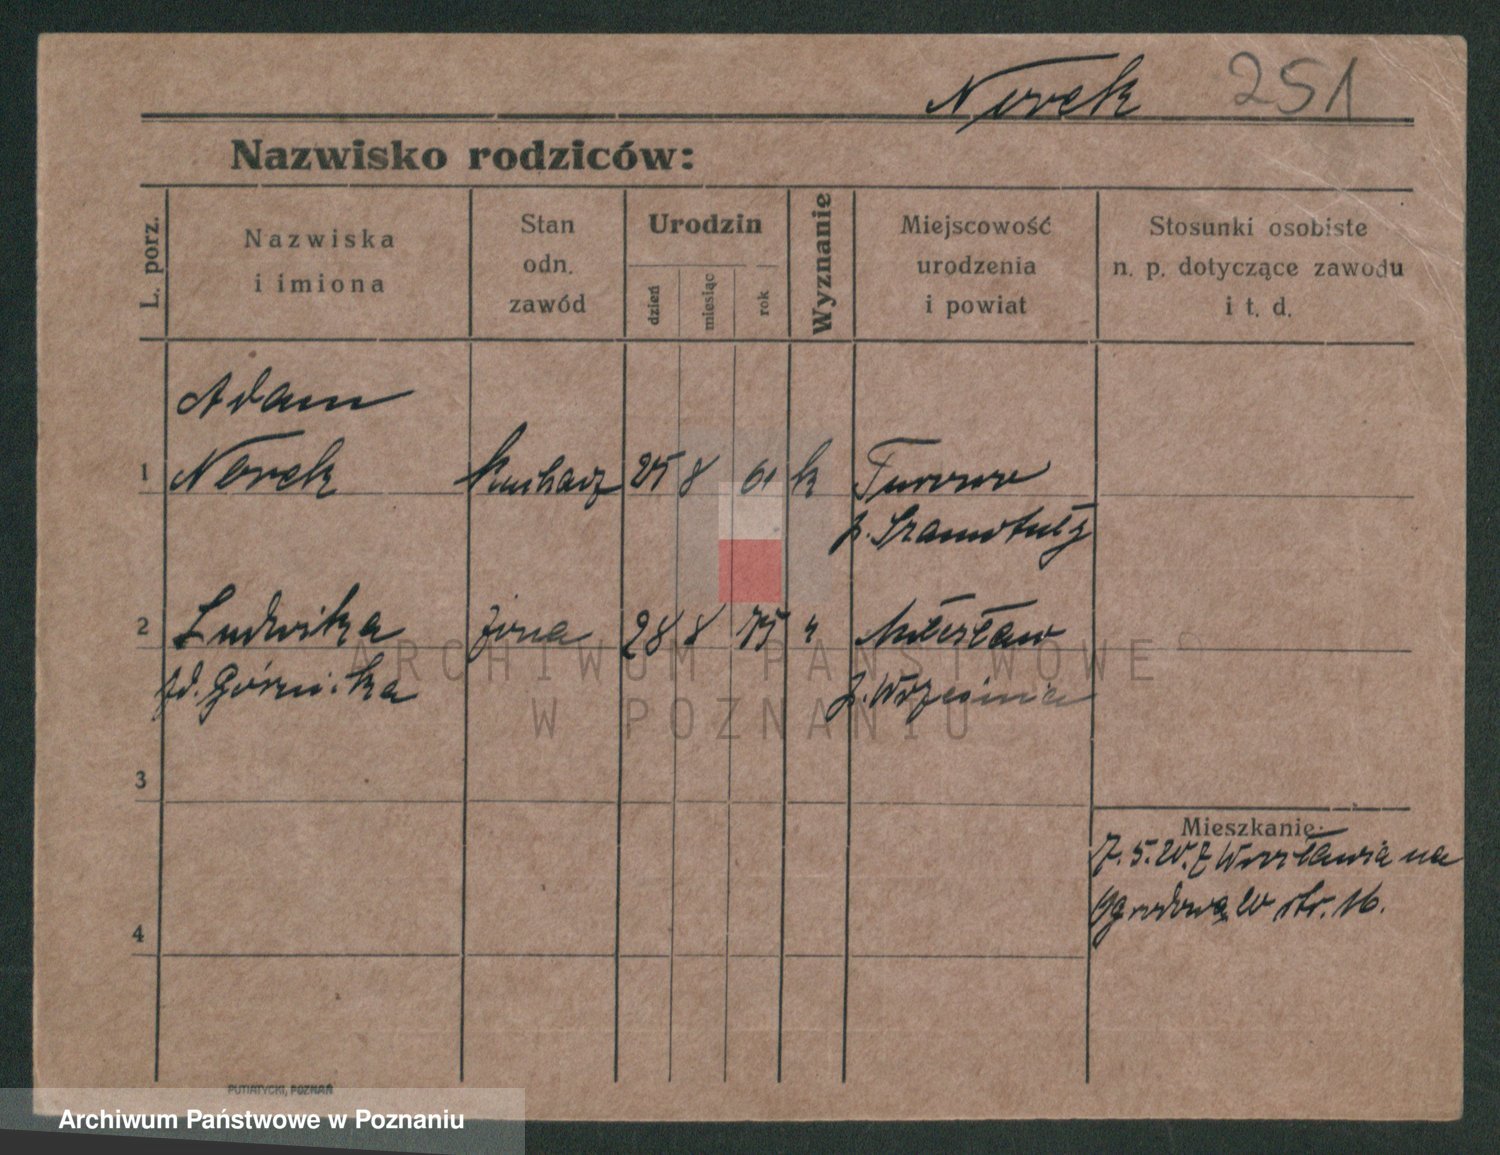 Norek 251
Nazwisko rodziców:
L. porz.
Nazwiska
i imiona
Stan
odn.
zawód
Urodzin
dzień
miesiąc
rok
Wyznanie
Miejscowość
urodzenia
i powiat
Stosunki osobiste
n. p. dotyczące zawodu
i t. d.
Adam
1 Norek kucharz 25 8 61 k Turowo
p. Szamotuły
2 Ludwika żona 28 8 75 " Miłosław
zd. Górnicka p. Września
3
Mieszkanie:
7. 5. 20. z Wrocławia na
Ogrodową 20 str. 16.
4
ARCHIWUM PAŃSTWOWE
W POZNANIU
PUTIATYCKI, POZNAŃ
Archiwum Państwowe w Poznaniu